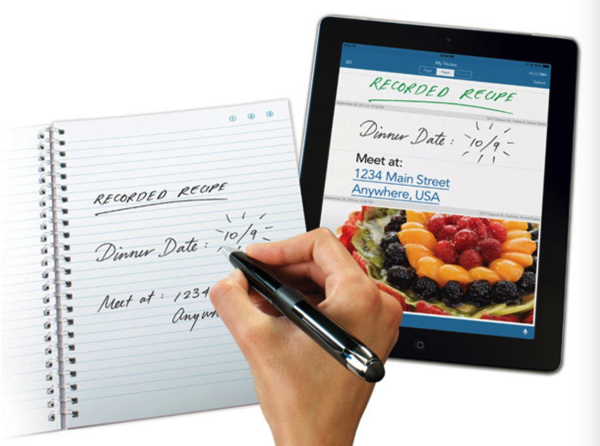 RECORDED RECIPE
Dinner Date : 10/9
Meet at : 1234
My Notes
Page
Feed
RECORDED RECIPE
Dinner Date : 10/9
Meet at:
1234 Main Street
Anywhere, USA